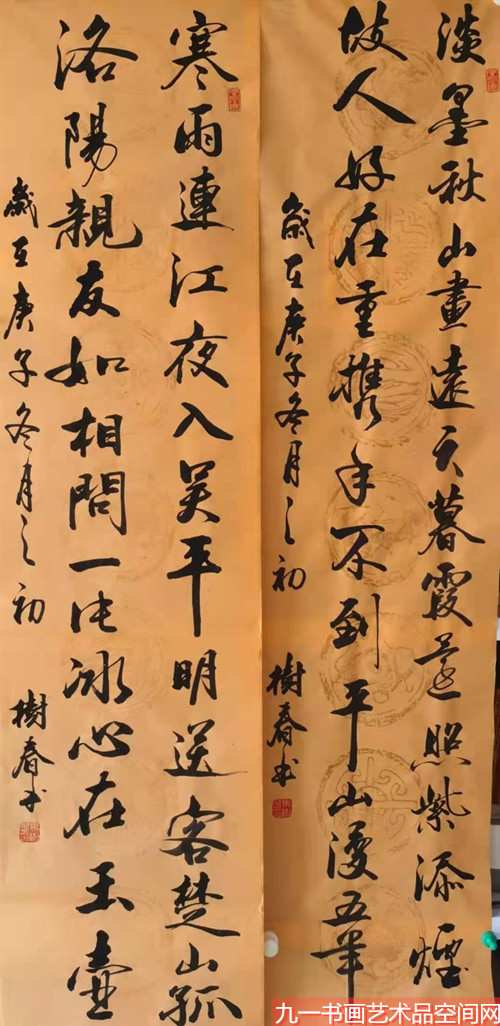 淡墨秋山畫遠天暮霞還照紫添煙
故人好在重携手不到平山漫五年
歲在庚子冬月之初 樹春书
寒雨連江夜入吴平明送客楚山孤
洛陽親友如相問一片冰心在玉壺
歲在庚子冬月之初 樹春书
九一书画艺术品空间网